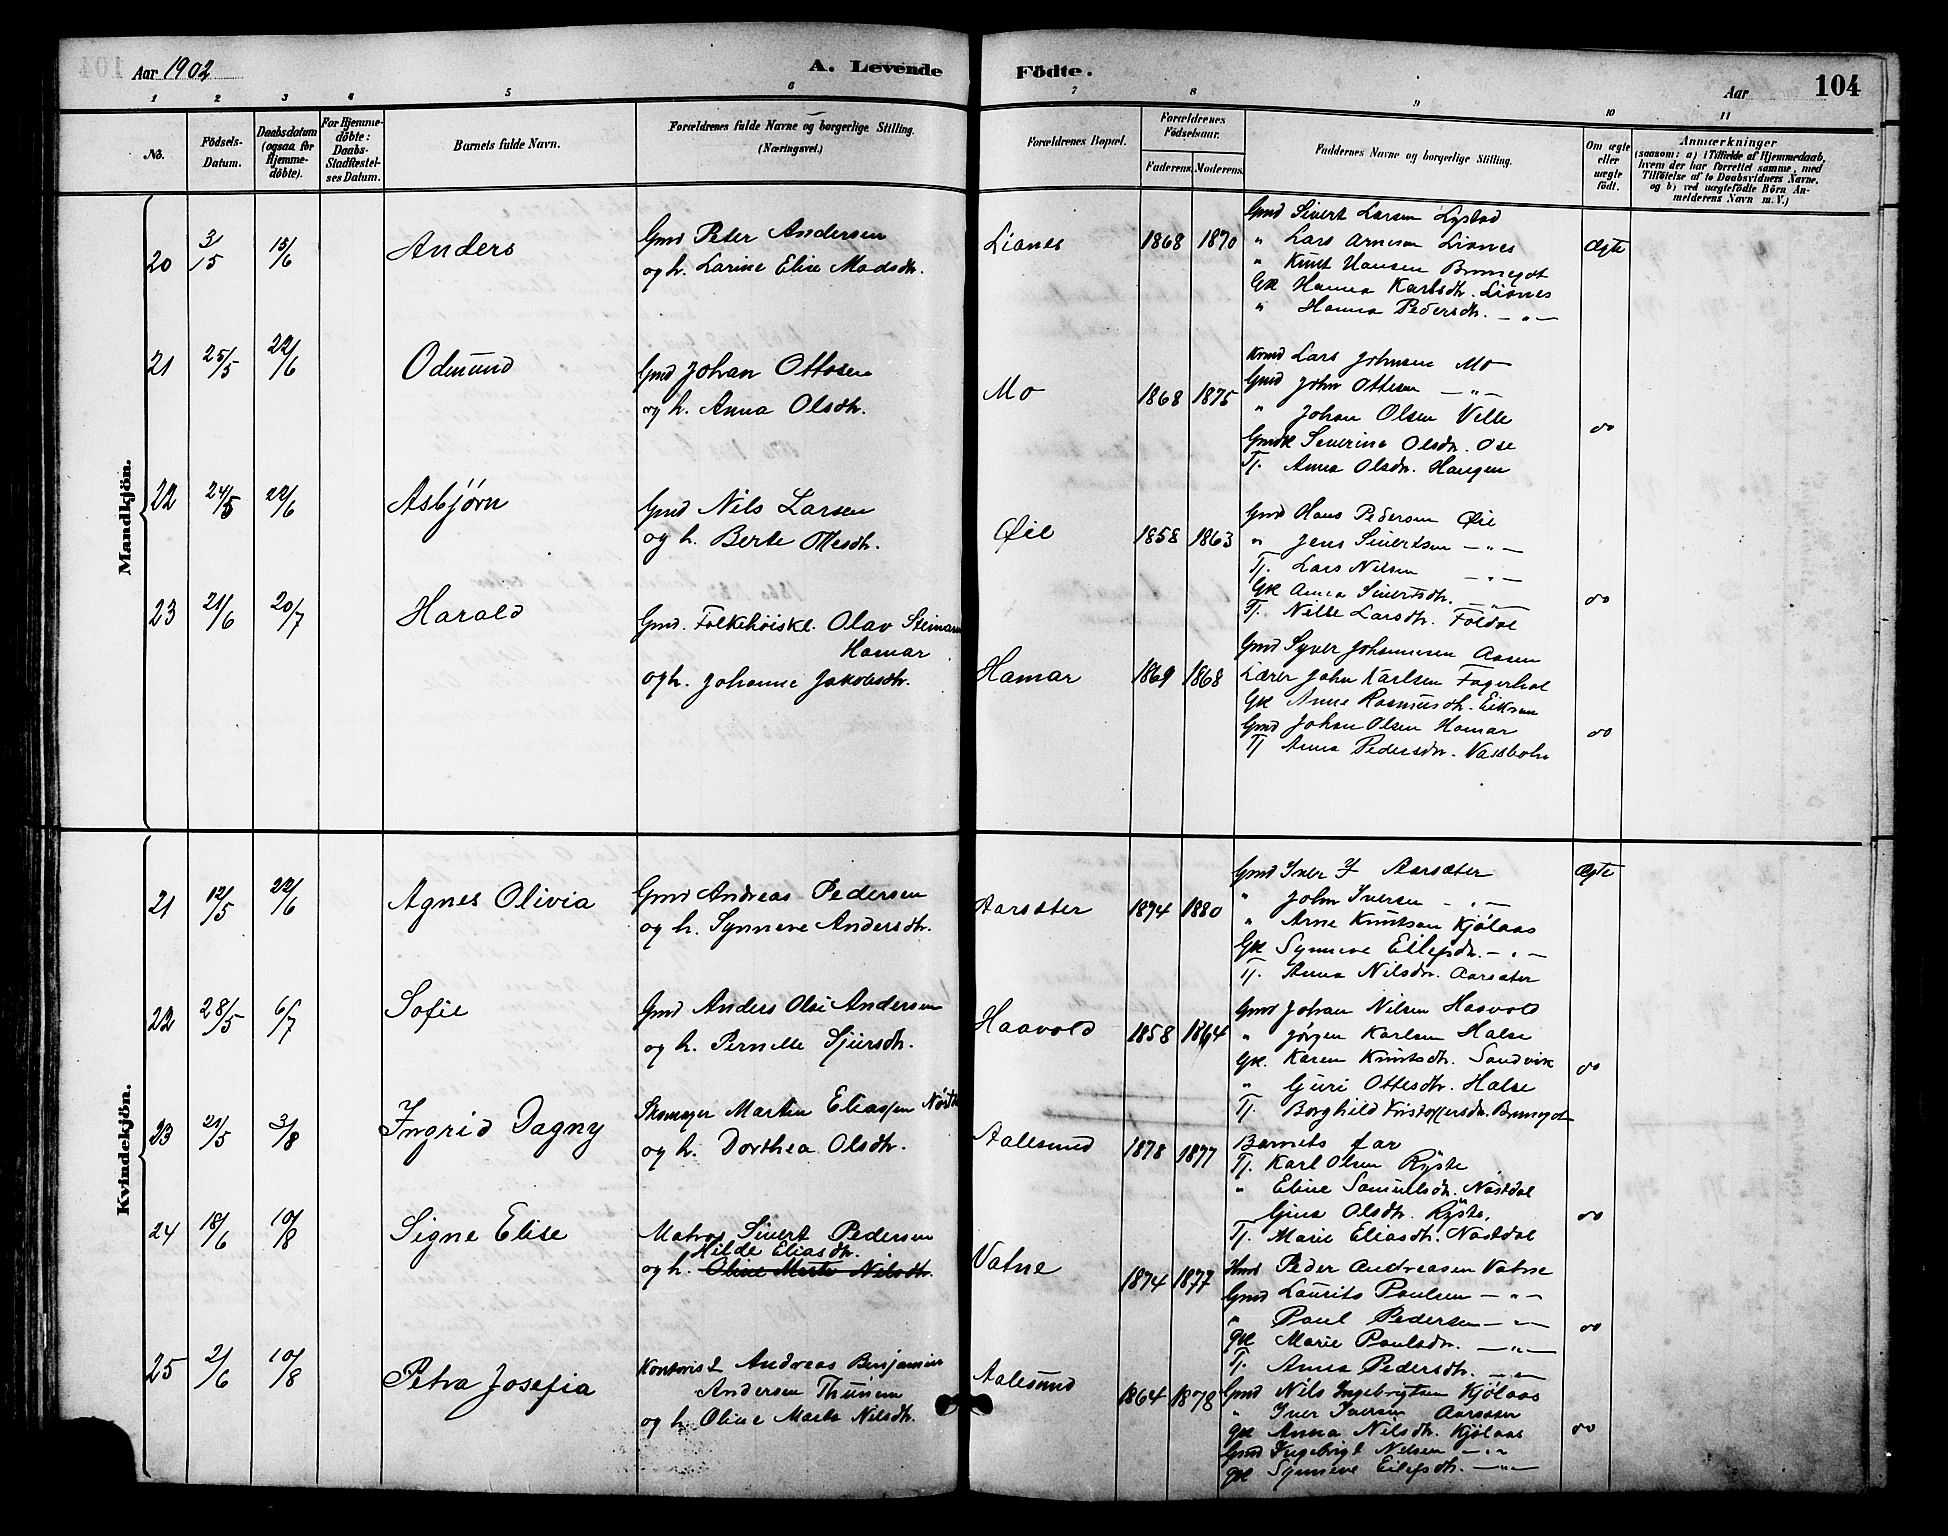 Aar 1902
A. Levende Födte.
Aar
104
1 2 3 4 5 6 7 8 9 10 11
No.
Födsels-Datum.
Daabsdatum (ogsaa for Hjemme-döbte).
For Hjemme-döbte: Daabs-Stadfæstel-ses Datum.
Barnets fulde Navn.
Forældrenes fulde Navne og borgerlige Stilling.
(Næringsvei.)
Forældrenes Bopæl.
Forældrenes Födselsaar.
Faderens. Moderens.
Faddernes Navne og borgerlige Stilling.
Om ægte eller uægte født.
Anmærkninger
(saasom: a) i Tilfælde af Hjemmedaab,
hvem der har forrettet samme, med
Tilföielse af to Daabsvidners Navne.
og b) ved uægtefödte Börn An-
melderens Navn m. V.)
Mandkjön.
20 3/15 15/6 Anders
Gmd Peter Andersen
og h. Larine Elise Madsdtr.
Lianes 1868 1870
Gmd Sivert Larsen Lystad
" Lars Arnesen Lianes
" Knut Hansen Brunegot
Gk Hanna Karlsdtr. Lianes
" Hanna Pedersdtr. — " —
Ægte
21 25/5 22/6 Odmund
Gmd Johan Ottosen
og h. Anna Olsdtr.
Mo 1868 1875
Kmd Lars Johnsen Mo
Gmd John Ottesen — " —
" Johan Olsen Velle
Gmdk Severine Olsdtr. Ose
Tj. Anna Olsdtr. Haugen
do
22 24/5 22/6 Asbjørn
Gmd Nils Larsen
og h. Berte Ottesdtr.
Øie 1858 1863
Gmd Hans Pedersen Øie
" Jens Sivertsen — " —
Tj. Lars Nilsen — " —
Gk Anna Sivertsdtr. — " —
Tj. Nille Larsdtr. Foldal
do
23 21/6 20/7 Harald
Gmd. Folkehøiskl. Olav Steinarn
Hamar
og h. Johanne Jakobsdtr.
Hamar 1869 1868
Gmd Syver Johannesen Aasen
Lærer John Karlsen Fagerhol
Gk Anne Rasmusdtr. Eikrem
Gmd Johan Olsen Hamar
Tj Anna Pedersdtr. Vassbotn
do
Kvindekjön.
21 12/5 22/6 Agnes Olivia
Gmd Andreas Pedersen
og h. Synneve Andersdtr.
Aarsæter 1874 1880
Gmd Iver I Aarsæter
" John Iversen — " —
" Arne Knutsen Kjölaas
Gk Synneve Eilefsdtr. — " —
Tj. Anna Nilsdtr. Aarsæter
Ægte
22 28/5 6/7 Sofie
Gmd Anders Olsi Andersen
og h. Pernille Sjursdtr.
Haavold 1858 1864
Gmd Johan Nilsen Haavold
" Jörgen Karlsen Halse
Gk. Karen Knutsdtr. Sandvik
" Guri Ottesdtr. Halse
Tj. Borghild Kristoffersdtr. Brunegot
do
23 21/5 3/8 Ingrid Dagny
Skomager Martin Eliassen Nöstd
og h. Dorthea Olsdtr.
Aalesund 1878 1877
Barnets far
Tj. Karl Olsen Ryste
" Eline Samuelsdtr. Nöstdal
Gina Olsdtr. Ryste.
Tj. Marie Eliasdtr. Nöstdal
do
24 18/6 10/8 Signe Elise
Matros Sivert Pedersen
Hilde Eliasdtr.
og h. Oline Marta Nilsdtr.
Vatne 1874 1877
Kmd Peder Andreasen Vatne
Gmd Laurits Paulsen — " —
" Paul Pedersen — " —
gk Marie Paulsdtr. — " —
Tj. Anna Pedersdtr. — " —
do
25 2/6 10/8 Petra Josefia
Kontorist Andreas Benjamin
Andersen Thunem
og h. Oline Marta Nilsdtr.
Aalesund 1864 1878
Gmd Nils Ingebrigtsen Kjölaas
" Iver Iversen Aarsæter
gk Anna Nilsdtr. Kjölaas
Gmd Ingebrigt Nilsen — " —
gk Synneve Eilefsdtr. — " —
do